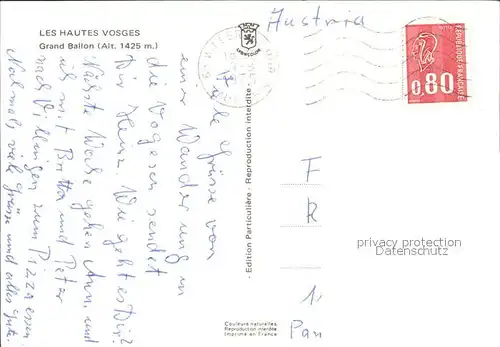 LES HAUTES VOSGES
Grand Ballon (Alt. 1425 m.)
Austria
Viele Grüsse von
einer Wanderung in
die Vogesen sendet
Dir Heinz. Wie geht es Dir?
Nächste Woche gehen Ann. und
ich mit Britta und Peter
nach Villingen zum Pizza essen.
Nochmals viele Grüsse und alles Gute.
- Edition Particulière - Reproduction interdite -
LEBERCOLOR
REPUBLIQUE FRANCAISE
0,80
F
R
1
Pan
privacy protection
Datenschutz
Couleurs naturelles
Reproduction interdite
Imprimé en France